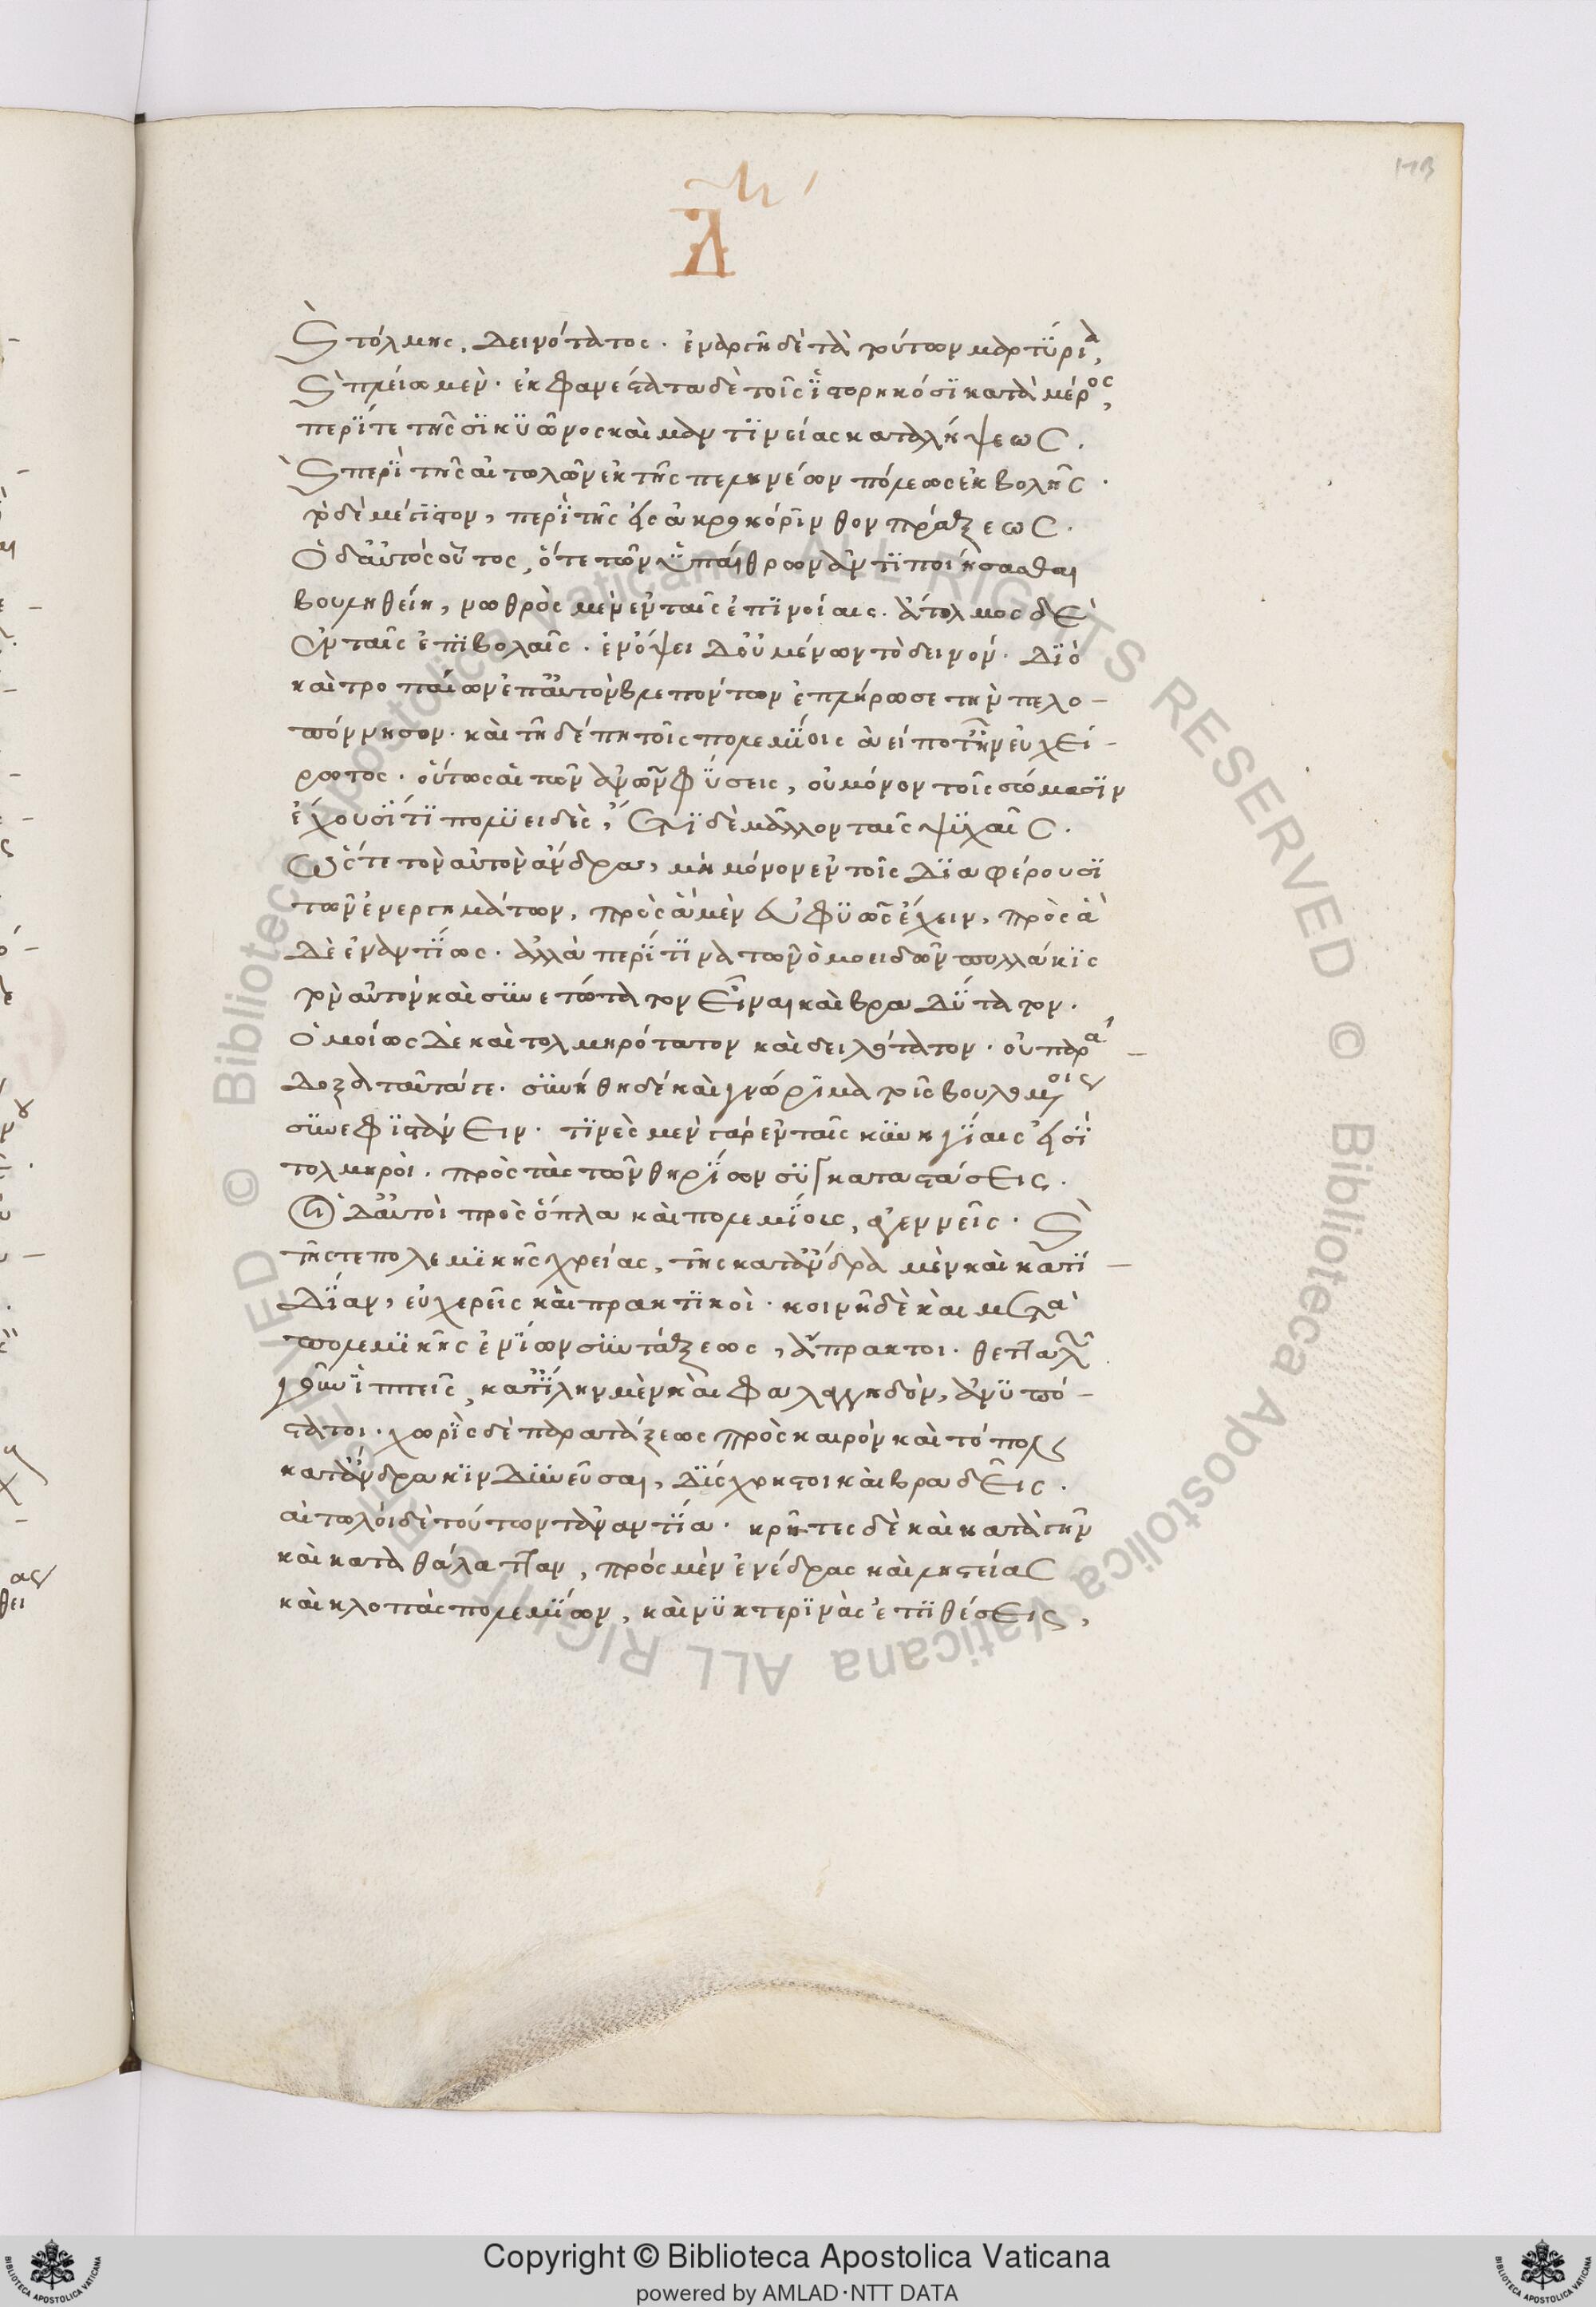 Δ
Καὶ τόλμης, δεινότατος· ἐναργῆ δὲ τὰ τούτων μαρτύρια,
καὶ πλείω μὲν· ἐκφανέστατα δὲ τοῖς ἱστορηκόσι κατὰ μέρος,
περί τε τῆς σικυῶνος καὶ μαντινείας καταλήψεως.
καὶ περὶ τῆς αἰτωλῶν ἐκ τῆς πελληνέων πόλεως ἐκβολῆς·
τὸ δὲ μέγιστον, περὶ τῆς εἰς ἀκροκόρινθον πράξεως.
Ὁ δ᾽αὐτὸς οὗτος, ὅτε τῶν ὑπαίθρων ἀντιποιήσασθαι
βουληθείη, νωθρὸς μὲν ἐν ταῖς ἐπινοίαις. ἄτολμος δὲ
ἐν ταῖς ἐπιβολαῖς· ἐν ὄψει δ᾽οὐ μένων τὸ δεινόν· διὸ
καὶ τροπαίων ἐπ᾽αὐτὸν βλεπόντων ἐπλήρωσε τὴν πελο-
πόννησον· καὶ τῇ δέ πη τοῖς πολεμίοις ἀεί ποτ᾽ ἦν εὐχεί-
ρωτος· οὕτως αἱ τῶν ἀνῶν φύσεις, οὐ μόνον τοῖς σώμασιν
ἔχουσί τι πολυειδὲς, ἔτι δὲ μᾶλλον ταῖς ψυχαῖς.
Ὥστε τὸν αὐτὸν ἄνδρα, μὴ μόνον ἐν τοῖς διαφέρουσι
τῶν ἐνεργημάτων, πρὸς ἃ μὲν εὐφυῶς ἔχειν, πρὸς ἃ
δὲ ἐναντίως· ἀλλὰ περί τινα τῶν ὁμοειδῶν πολλάκις
τὸν αὐτὸν καὶ συνετώτατον εἶναι καὶ βραδύτατον.
Ὁμοίως δὲ καὶ τολμηρότατον καὶ δειλότατον· οὐ παρά-
δοξα ταῦτά τε· συνήθη δὲ καὶ γνώριμα τοῖς βουλομένοις
συνεφιστάνειν· τινὲς μὲν γὰρ ἐν ταῖς κυνηγίαις εἰσὶ
τολμηροὶ. πρὸς τὰς τῶν θηρίων συγκαταστάσεις.
Οἱ δ᾽αὐτοὶ πρὸς ὅπλα καὶ πολεμίους, ἀγεννεῖς· καὶ
τῆς τε πολεμικῆς χρείας, τῆς κατ᾽ἄνδρα μὲν καὶ κατ᾽ἰ-
δίαν, εὐχερεῖς καὶ πρακτικοὶ· κοινῇ δὲ καὶ μετὰ
πολεμικῆς ἐνίων συντάξεως, ἄπρακτοι· θετταλῶν
γοῦν ἱππεῖς, κατ᾽ἴλην μὲν καὶ φαλαγγηδὸν, ἀνυπό-
στατοι· χωρὶς δὲ παρατάξεως πρὸς καιρὸν καὶ τόπον
κατ᾽ἄνδρα κινδυνεῦσαι, δύσχρηστοι καὶ βραδεῖς.
αἰτωλοὶ δὲ τούτων τἀναντία· κρῆτες δὲ καὶ κατὰ γῆν
καὶ κατὰ θάλατταν, πρὸς μὲν ἐνέδρας καὶ ληστείας
καὶ κλοπὰς πολεμίων, καὶ νυκτερινὰς ἐπιθέσεις,
© Biblioteca Apostolica Vaticana ALL RIGHTS RESERVED © Biblioteca Apostolica Vaticana ALL RIGHTS RESERVED
Copyright © Biblioteca Apostolica Vaticana
powered by AMLAD·NTT DATA